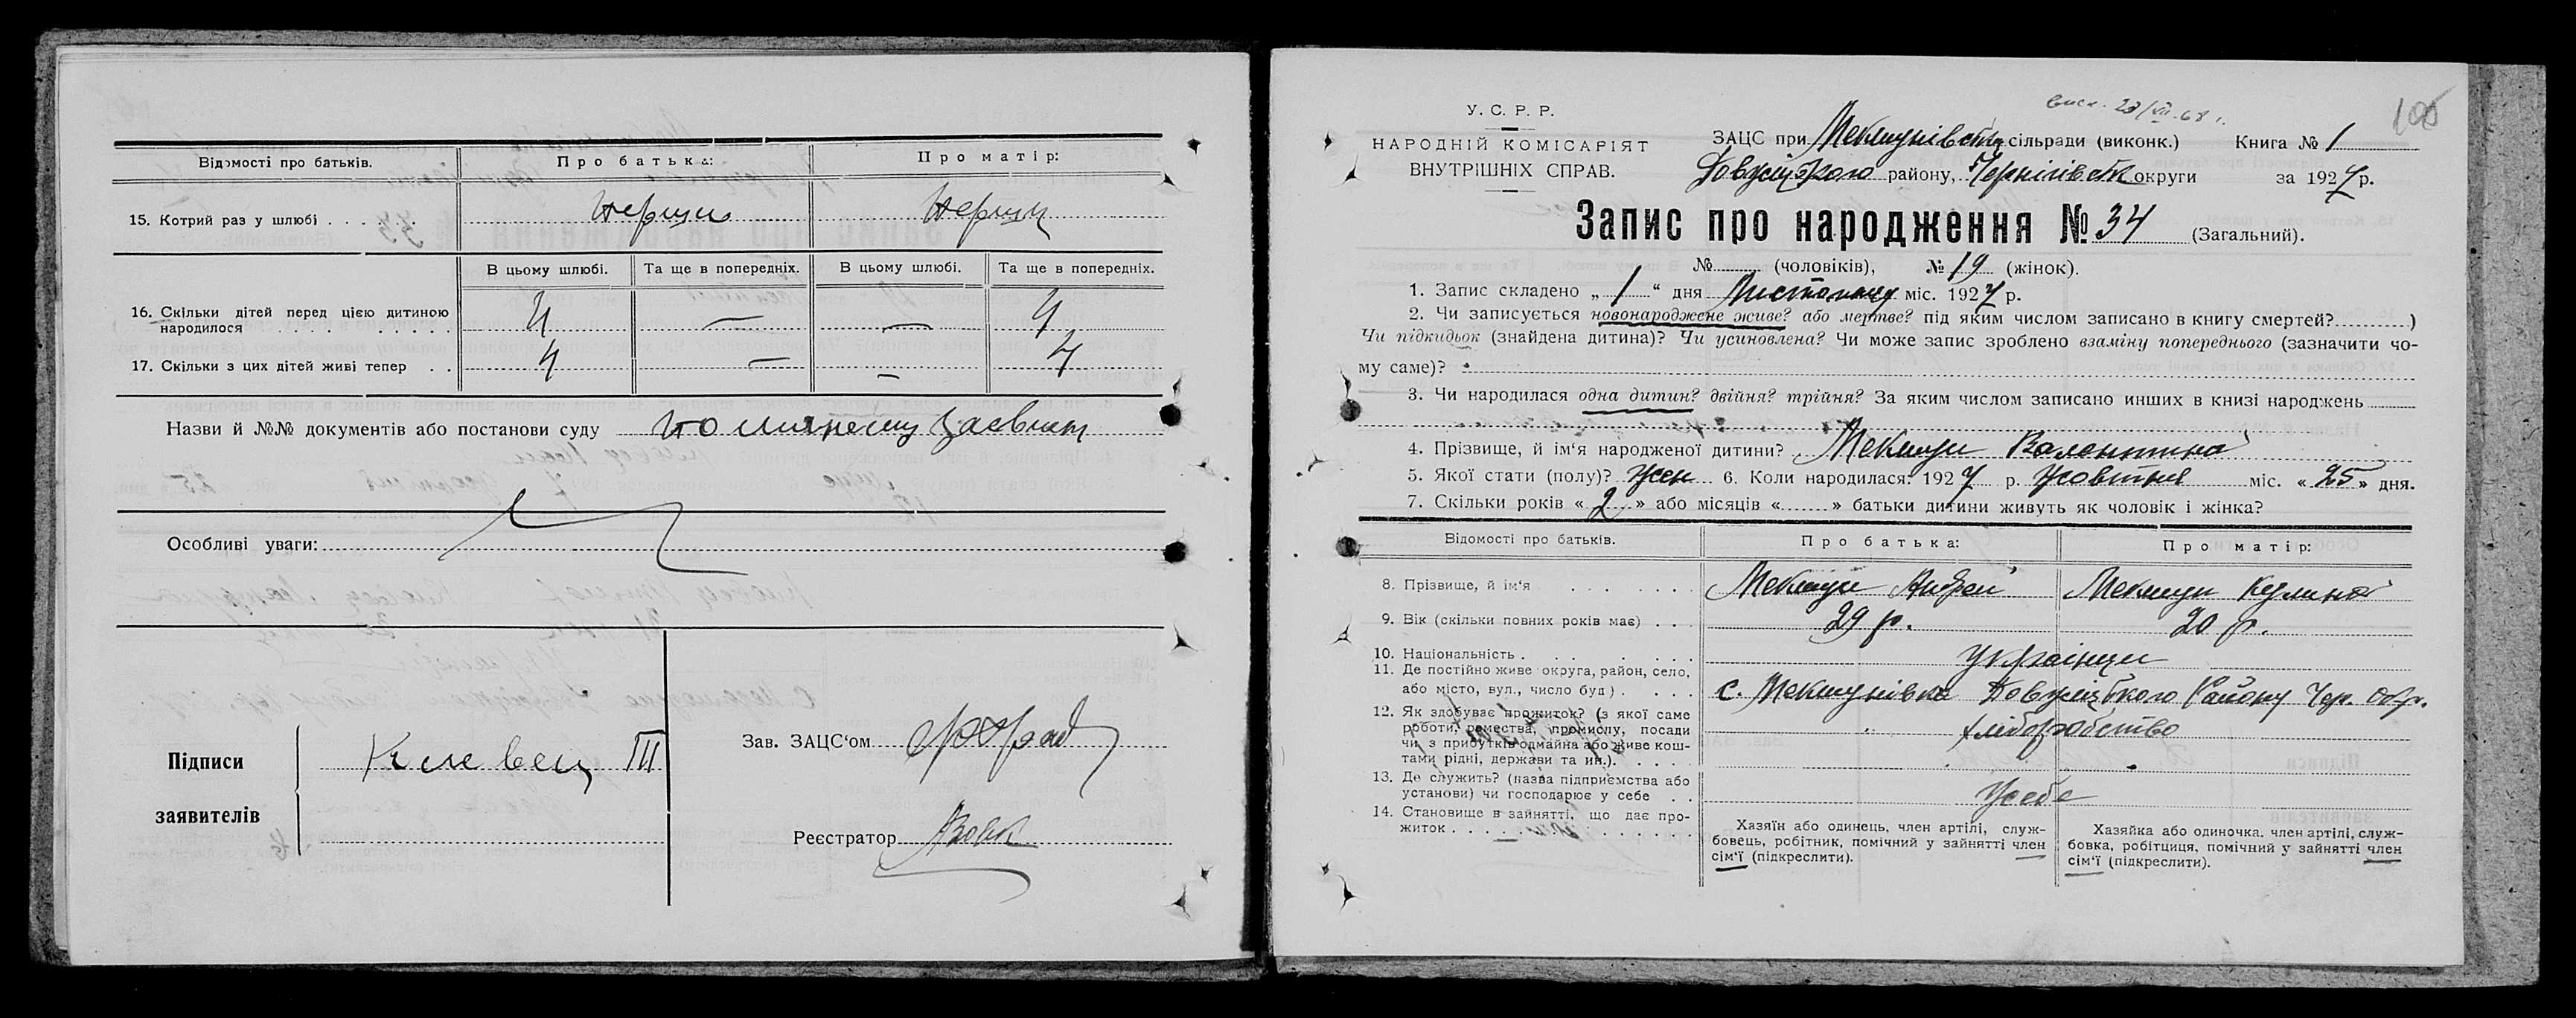 Відомості про батьків. Про батька: Про матір:
15. Котрий раз у шлюбі . . . . перши перши
В цьому шлюбі. Та ще в попередніх. В цьому шлюбі. Та ще в попередніх.
16. Скільки дітей перед цією дитиною
народилося . . . . . . . 4 — — 4
17. Скільки з цих дітей живі тепер . . 4 — — 4
Назви й №№ документів або постанови суду по
Особливі уваги:
Підписи
заявителів
III
Зав. ЗАЦС‘ом
Реєстратор Вовк
вист. 28/VII-68 г.
100
У. С. Р. Р.
НАРОДНІЙ КОМІСАРІЯТ
ВНУТРІШНІХ СПРАВ.
ЗАЦС при Мекшунівськ сільради (виконк.) Книга № 1
Довжицького району, Чернігівськ округи за 1927 р.
Запис про народження № 34 (Загальний).
№ (чоловіків), № 19 (жінок).
1. Запис складено „ 1 “ дня Листопаду міс. 1927 р.
2. Чи записується новонароджене живе? або мертве? під яким числом записано в книгу смертей? )
Чи підкидьок (знайдена дитина)? Чи усиновлена? Чи може запис зроблено взаміну попереднього (зазначити чо-
му саме)?
3. Чи народилася одна дитин? двійня? трійня? За яким числом записано инших в книзі народжень
4. Прізвище, й ім‘я народженої дитини? Мекшун Валентина
5. Якої стати (полу)? Жен 6. Коли народилася: 1927 р. Жовтня міс. « 25 » дня.
7. Скільки років « 2 » або місяців « » батьки дитини живуть як чоловік і жінка?
Відомості про батьків. Про батька: Про матір:
8. Прізвище, й ім‘я . . . . . . . Мекшун Андрей Мекшун Кулина
9. Вік (скільки повних років має) . . . 29 р. 20 р.
10. Національність . . . . . . . Українци
11. Де постійно живе округа, район, село,
або місто, вул., число буд) . . . . с. Мекшунівка Довжицького Району Чер. Окр.
12. Як здобуває прожиток? (з якої саме
роботи, ремества, промислу, посади хліборобство
чи, з прибутків одмайна або живе кош-
тами рідні, держави та ин.). . . . .
13. Де служить? (назва підприємства або
установи) чи господарює у себе . . Усебе
14. Становище в зайнятті, що дає про-
житок . . . . . . . . . . . .
Хазяїн або одинець, член артілі, служ-
бовець, робітник, помічний у зайнятті член
сім‘ї (підкреслити).
Хазяйка або одиночка, член артілі, служ-
бовка, робітциця, помічний у зайнятті член
сім‘ї (підкреслити).